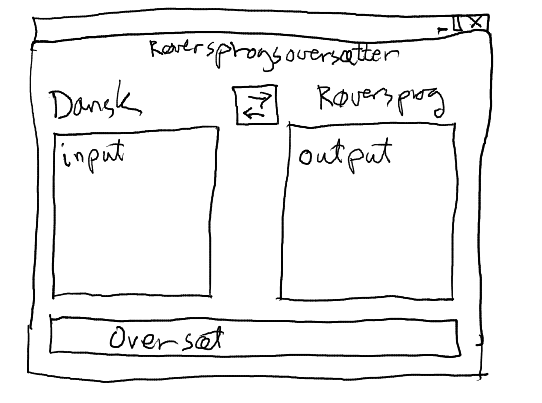 Røversprogsoversætter
Dansk
Røversprog
input
output
Oversæt